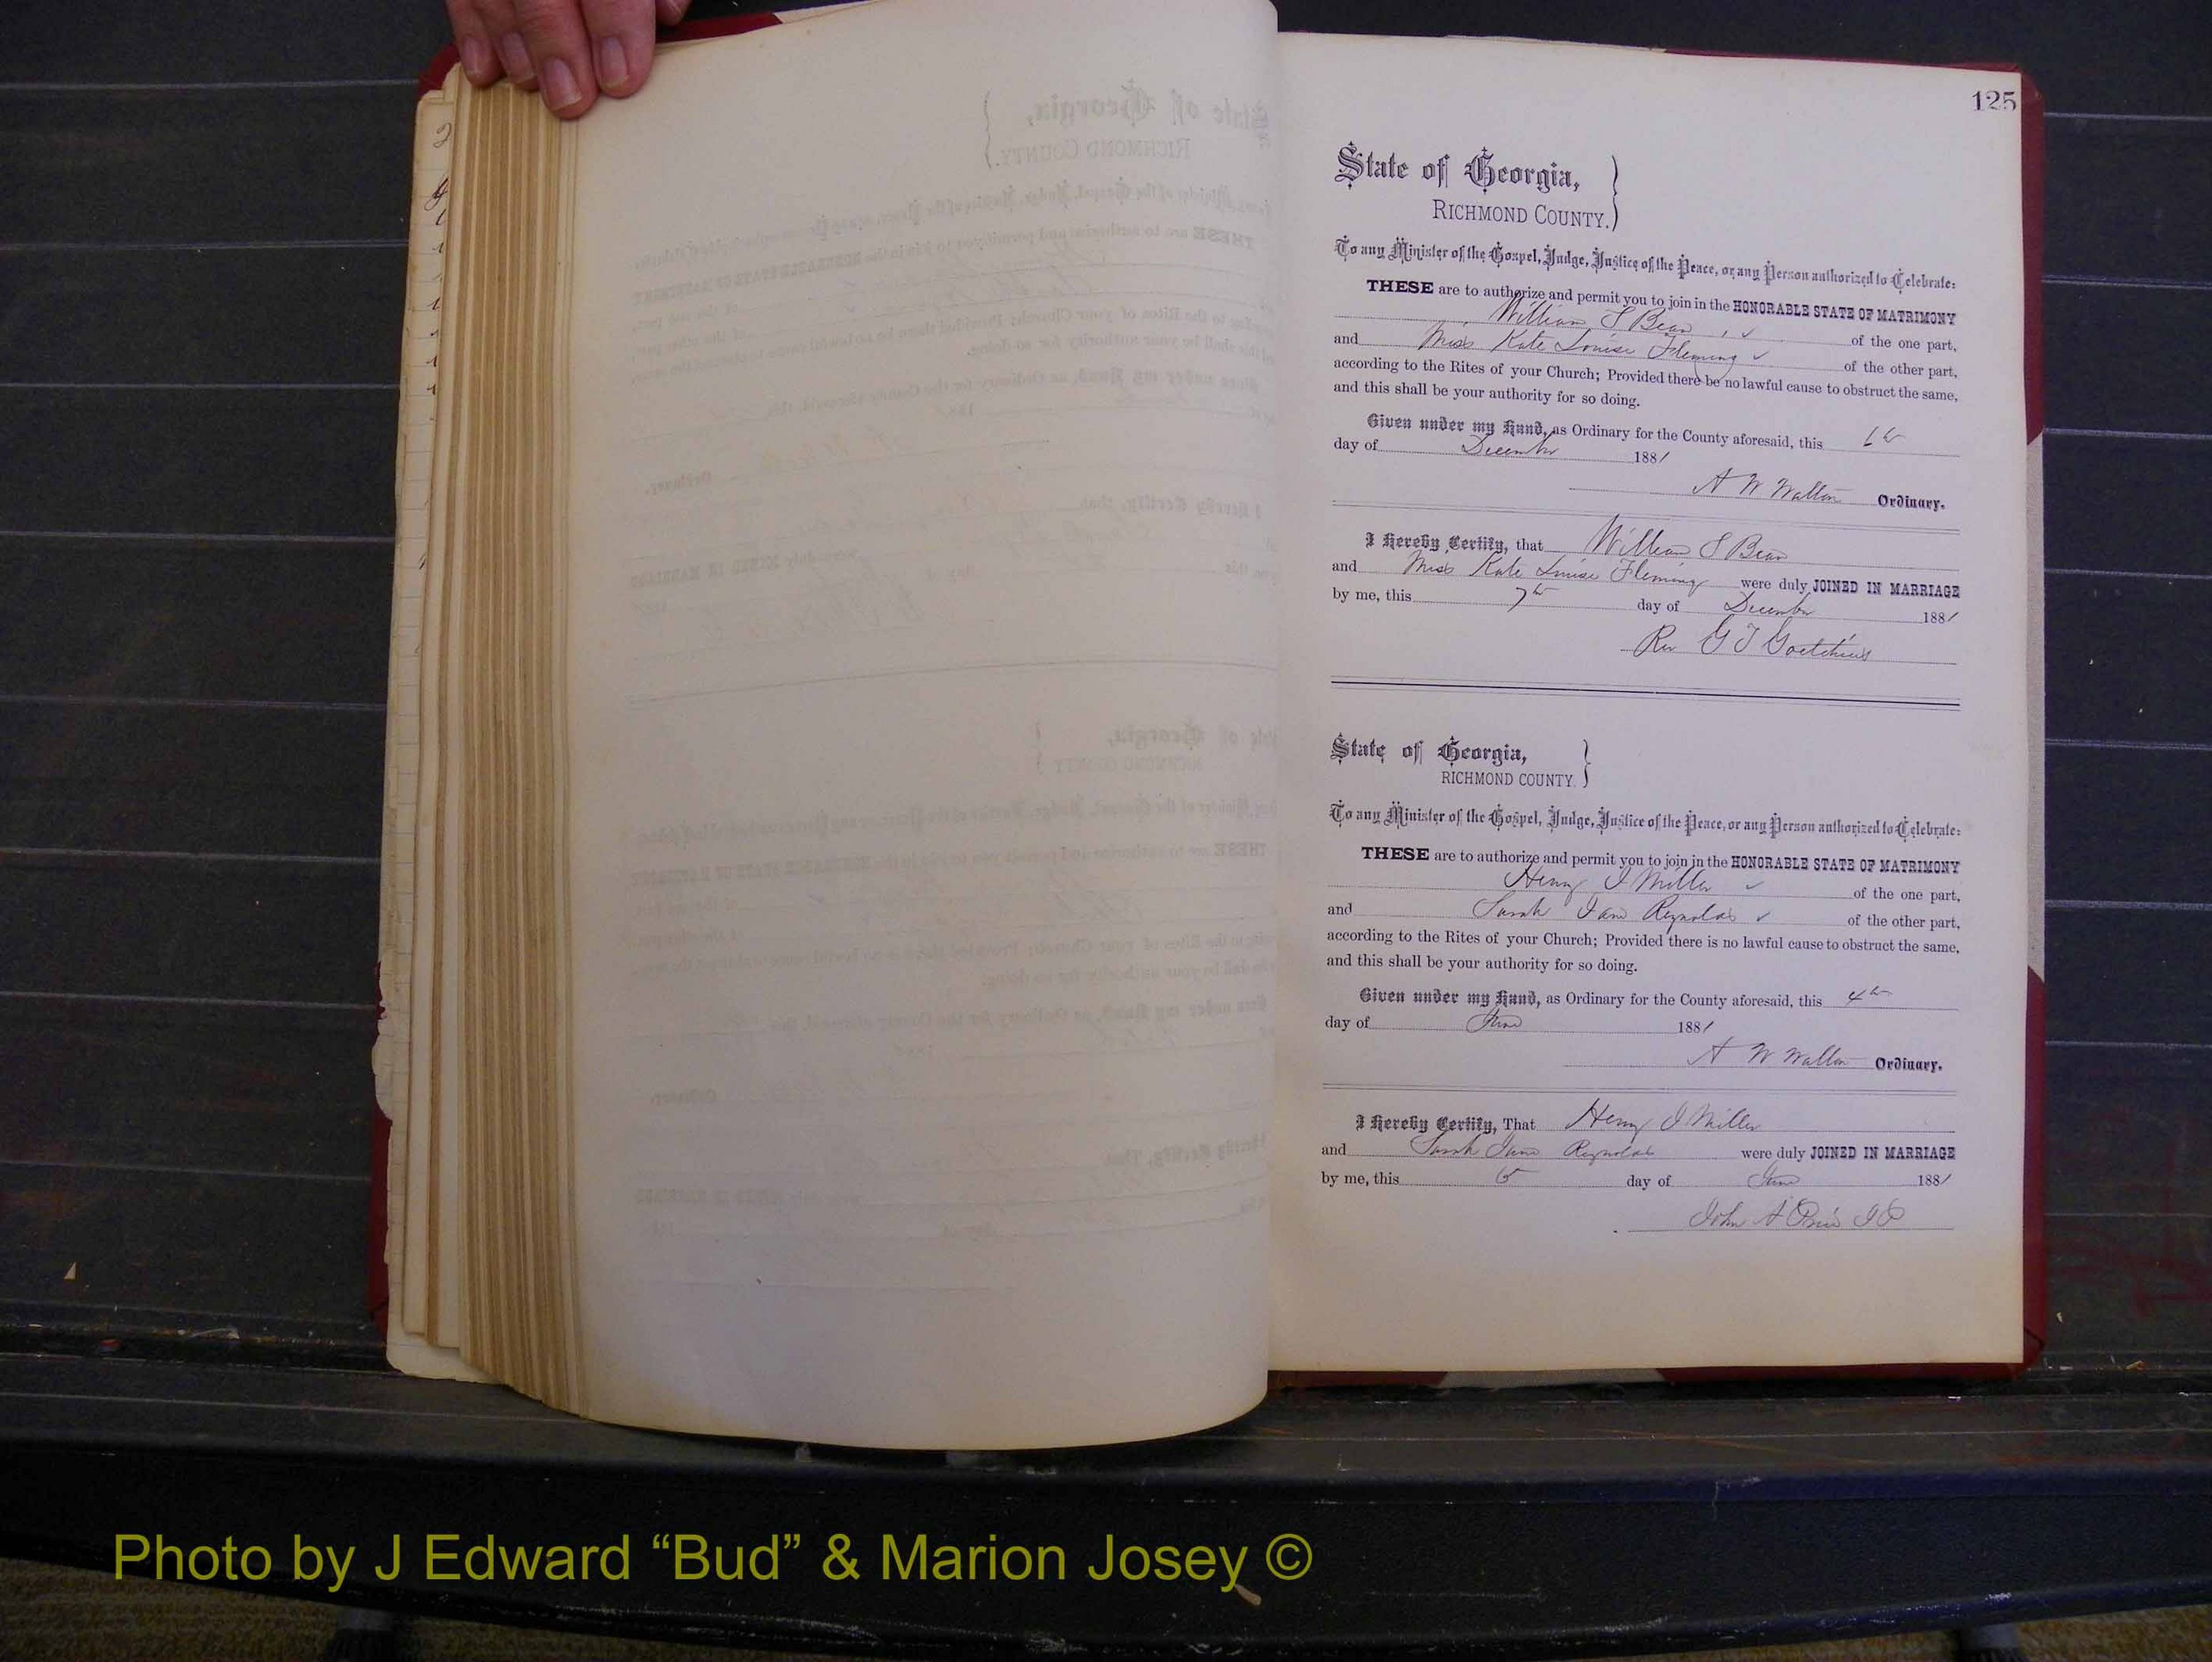 125
State of Georgia,
RICHMOND COUNTY.
To any Minister of the Gospel, Judge, Justice of the Peace, or any Person authorized to Celebrate:
THESE are to authorize and permit you to join in the HONORABLE STATE OF MATRIMONY
William S Bean of the one part,
and Miss Kate Louise Fleming of the other part,
according to the Rites of your Church; Provided there be no lawful cause to obstruct the same,
and this shall be your authority for so doing.
Given under my Hand, as Ordinary for the County aforesaid, this 6th
day of December 1881
A W Walton Ordinary.
I Hereby Certify, that William S Bean
and Miss Kate Louise Fleming were duly JOINED IN MARRIAGE
by me, this 7th day of December 1881
Rev G T Goetchius
State of Georgia,
RICHMOND COUNTY.
To any Minister of the Gospel, Judge, Justice of the Peace, or any Person authorized to Celebrate:
THESE are to authorize and permit you to join in the HONORABLE STATE OF MATRIMONY
Henry J Miller of the one part,
and Sarah Jane Reynolds of the other part,
according to the Rites of your Church; Provided there is no lawful cause to obstruct the same,
and this shall be your authority for so doing.
Given under my Hand, as Ordinary for the County aforesaid, this 4th
day of June 1881
A W Walton Ordinary.
I Hereby Certify, That Henry J Miller
and Sarah Jane Reynolds were duly JOINED IN MARRIAGE
by me, this day of June 1881
John A
Photo by J Edward “Bud” & Marion Josey ©